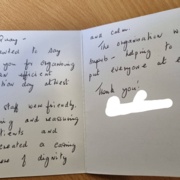 wanted to say
you for organising
efficient
day
staff were friendly,
and reassuring
and
created a caring
of dignity
and calm
The organisation w
superb - helping to
put everyone at e
Thank you.